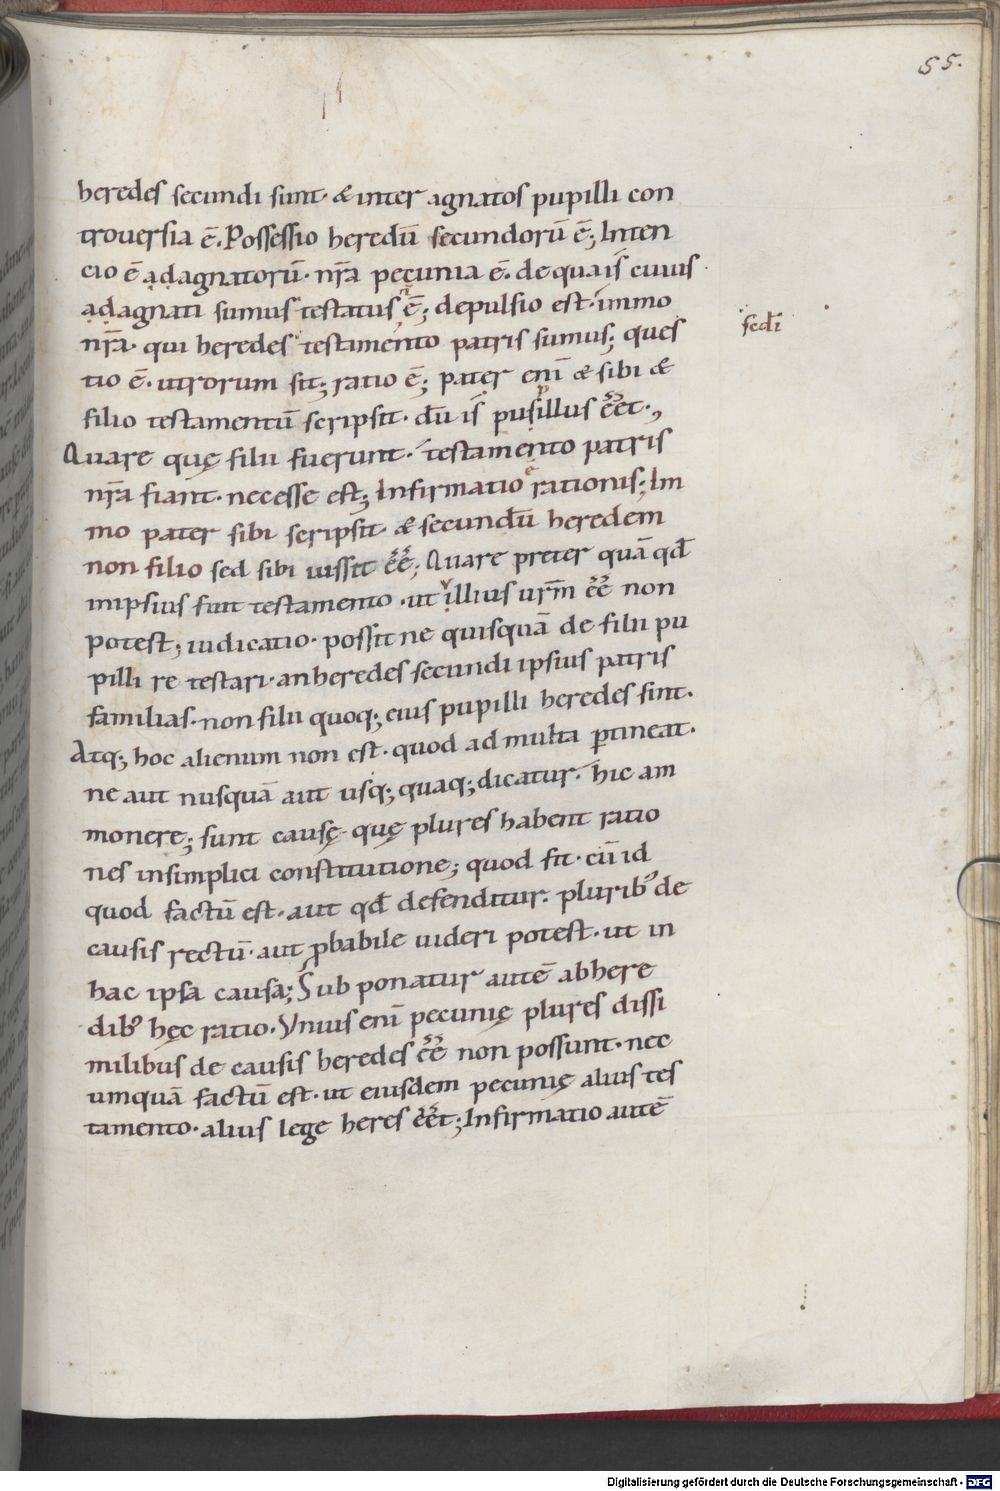 55.
heredes secundi sunt· & inter agnatos pupilli con
trouersia ē. Possessio heredū secundorū ē; Inten
cio ē adagnatorū· nr̄a pecunia ē. de qua is cuius
adagnati sumus testatus ē; depulsio est· immo
sedī
nr̄a· qui heredes testamento patris sumus; ques
tio ē· utrorum sit; ratio ē; pater enī & sibi &
filio testamentū scripsit· dū is pusillus ēēt·,
Quare quę filii fuerunt· testamento patris
nr̄a fiant· necesse est; Infirmatio rationis; Im
mo pater sibi scripsit· & secundū heredem
non filio sed sibi iussit ēē; Quare preter quā qd̄
inipsius fuit testamento· ut illius ur̄m ēē non
potest; iudicatio· possit ne quisquā de filii pu
pilli re testari· an heredes secundi ipsius patris
familias· non filii quoq; eius pupilli heredes sint·
Atq; hoc alienum non est· quod ad multa ꝑtineat·
ne aut nusquā aut usq; quaq; dicatur· hic am
monere; sunt causę· quę plures habent ratio
nes insimplici constitutione; quod fit· cū id
quod factū est· aut qd̄ defenditur· pluribꝰ de
causis rectū· aut ꝓbabile uideri potest· ut in
hac ipsa causa; Sub ponatur autē abhere
dibꝰ hęc ratio· Vnius enī pecunię plures dissi
milibus de causis heredes ēē non possunt· nec
umquā factū est· ut eiusdem pecunię alius tes
tamento· alius lege heres ēēt; Infirmatio autē
Digitalisierung gefördert durch die Deutsche Forschungsgemeinschaft - DFG